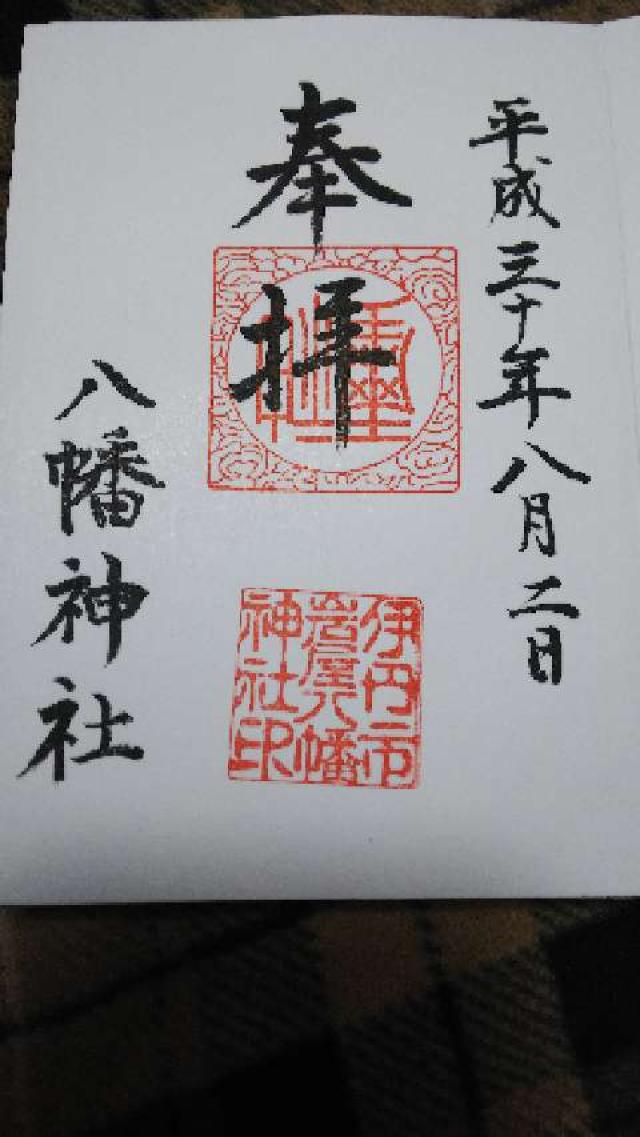 平成三十年八月二日
奉拝
伊丹市
岩屋八幡
神社印
八幡神社